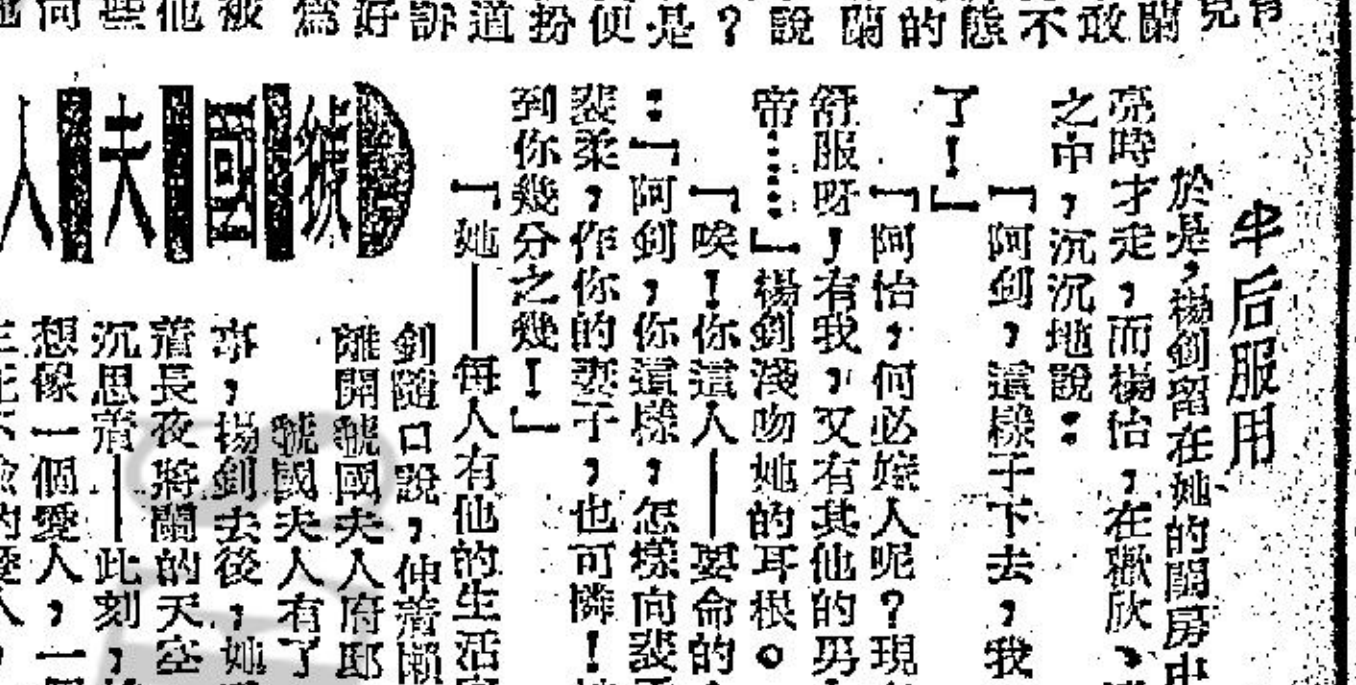 半后服用
於是，楊釗留在她的閨房中
亮時才走，而楊怡，在歡欣、
之中，沉沉地說：
「阿釗，這樣子下去，我
了！」
「阿怡，何必嫁人呢？現
舒服呀，有我，又有其他的男
帝……」楊釗淺吻她的耳根。
「唉！你這人——要命的
：「阿釗，你這樣，怎樣向裴柔
裴柔，作你的妻子，也可憐！
到你幾分之幾！」
「她——每人有他的生活
虢國夫人
釗隨口說，伸着懶
離開虢國夫人府邸
虢國夫人有了
事，楊釗去後，她
着長夜將闌的天空
沉思着——此刻，
想像一個愛人，一個